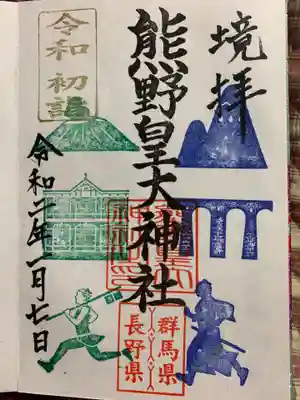 境拝
熊野皇大神社
群馬県
長野県
令和
初詣
令和二年一月七日